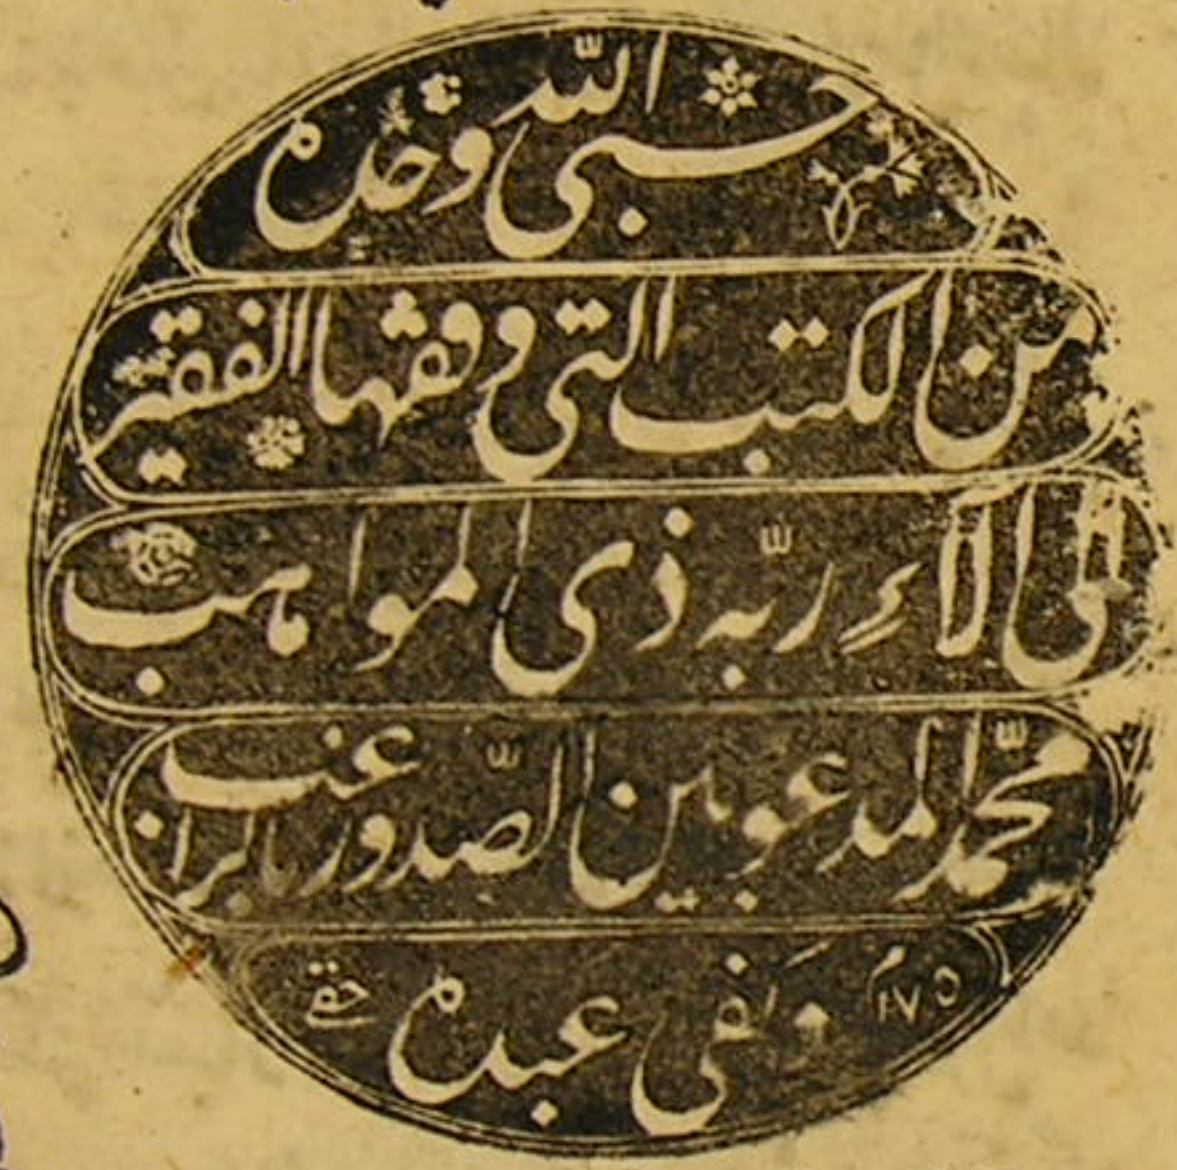 حسبى الله وحده
من الكتب التى وقفها الفقير
الى آلاء ربّه ذى المواهب
محمّد المدعو بين الصّدور بالراغب
وكفى عبده